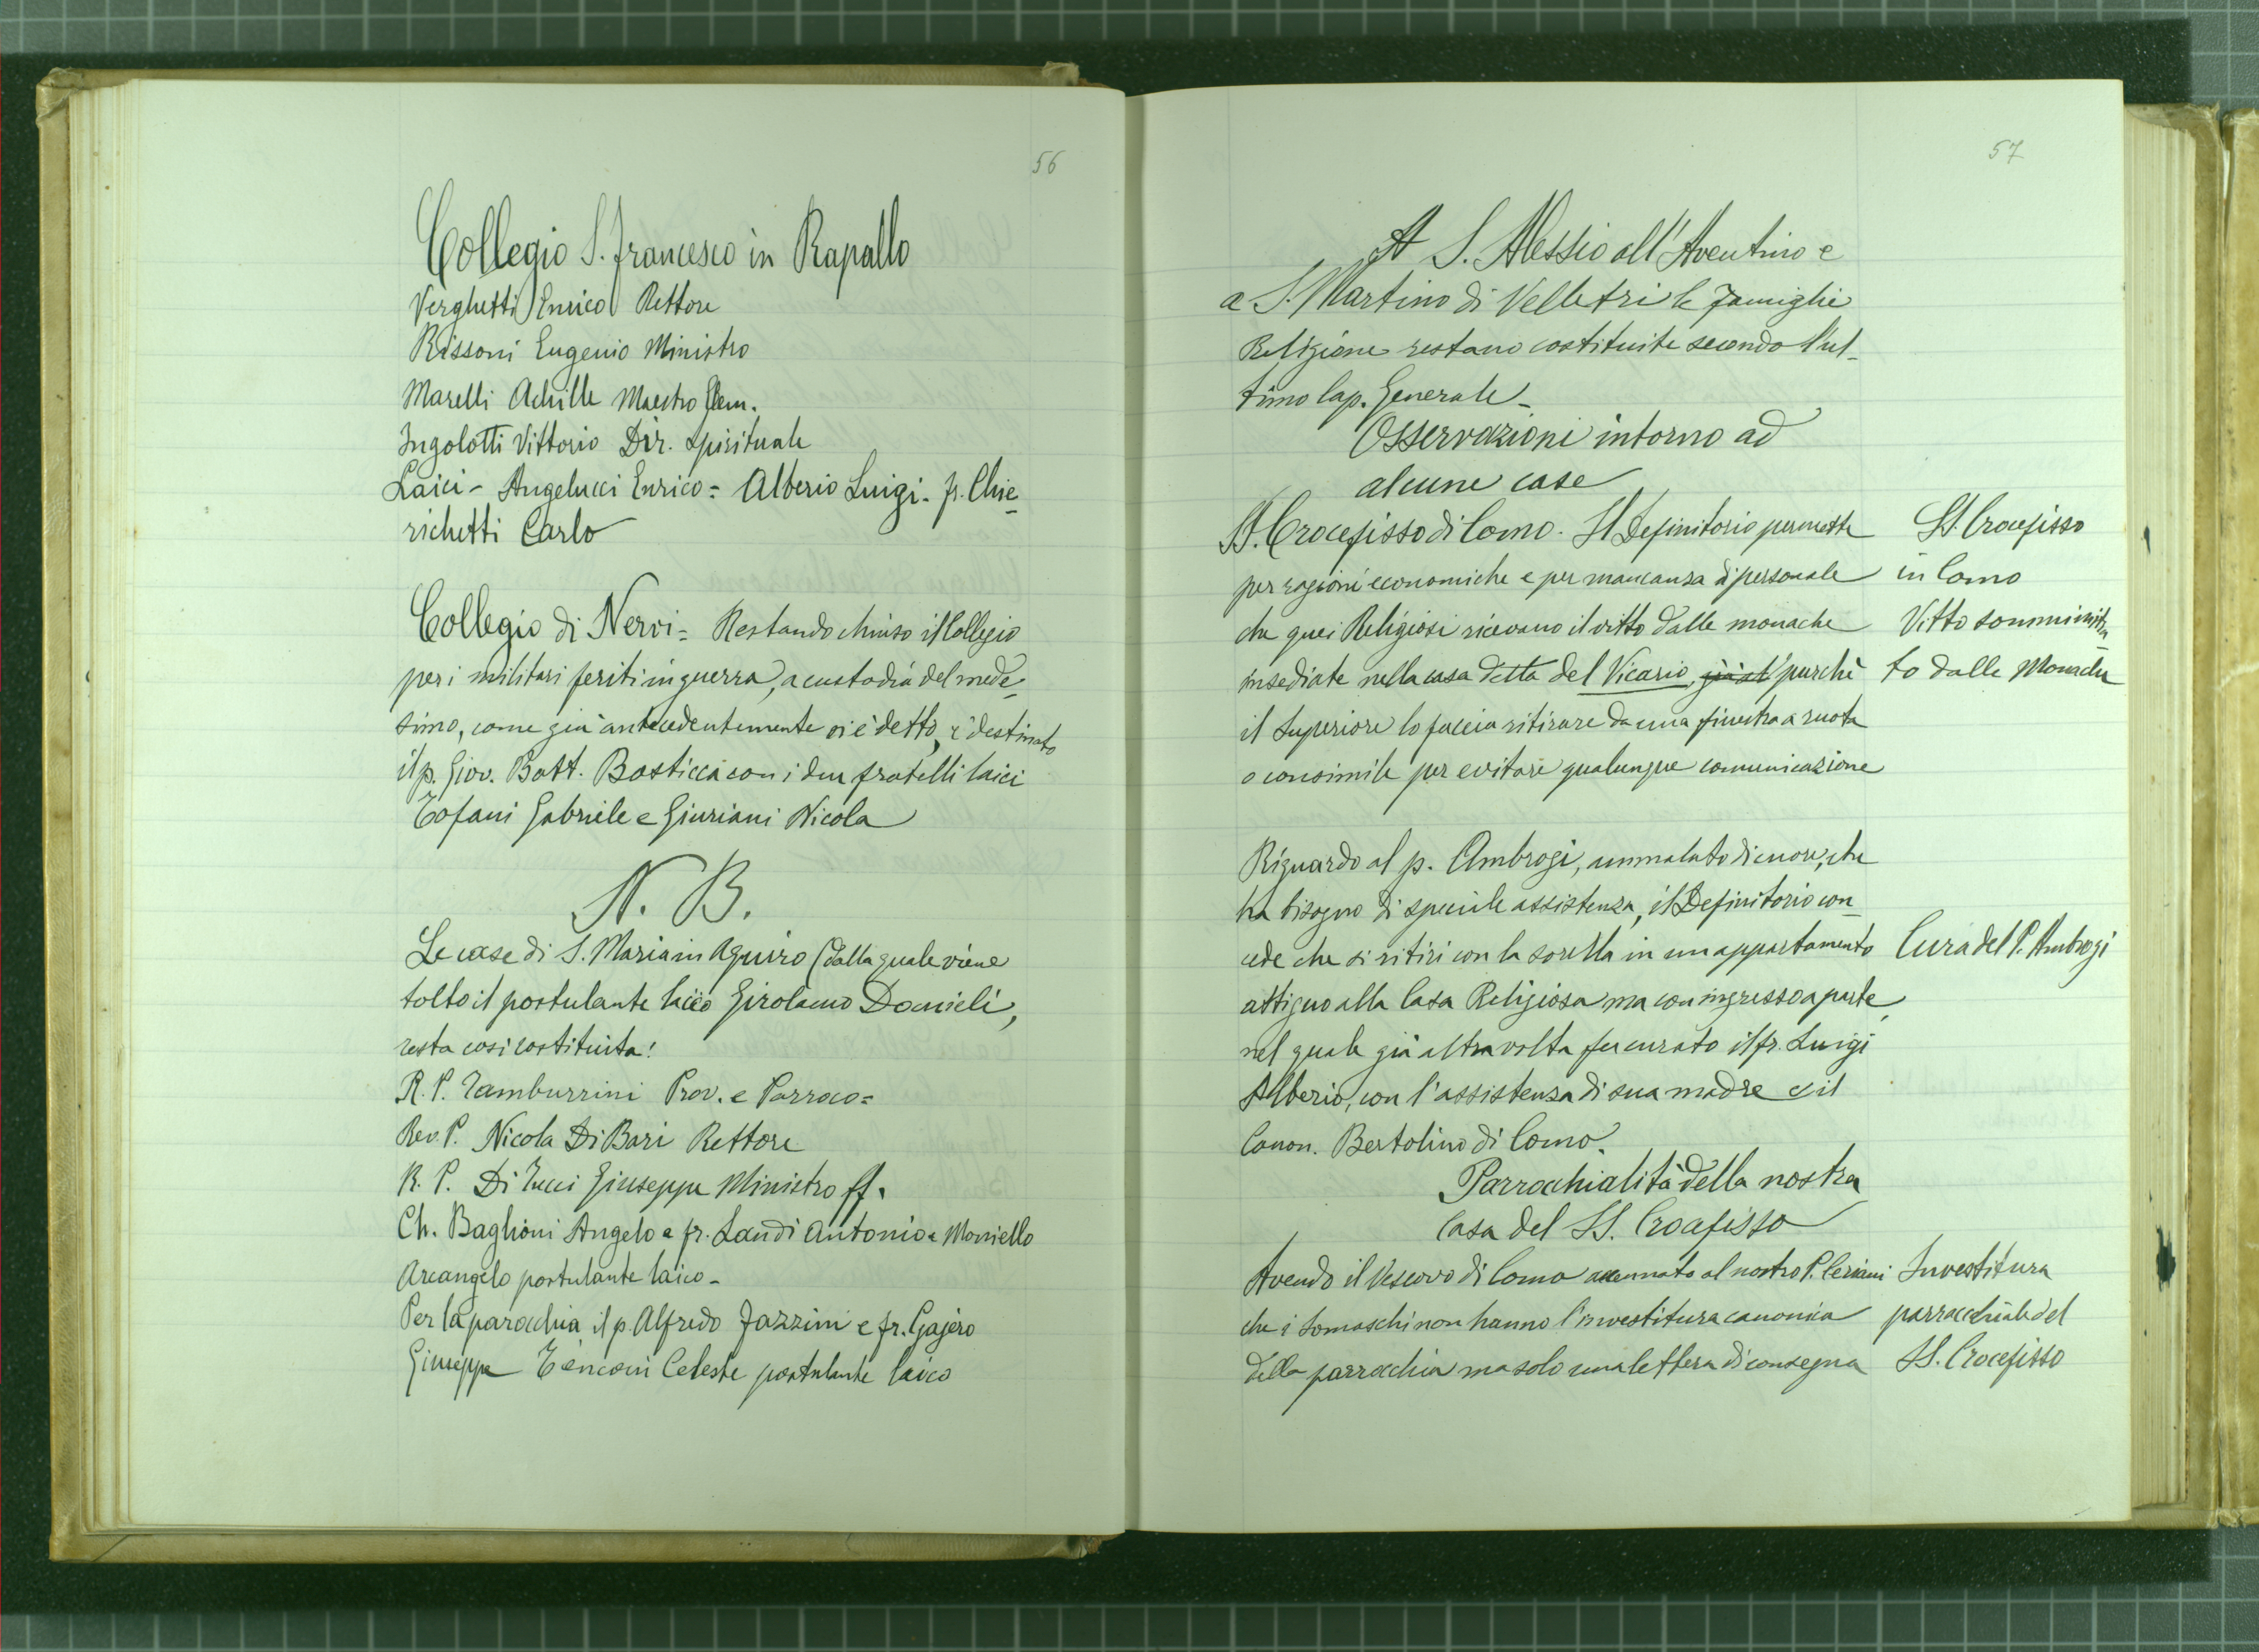 56
Collegio S. Francesco in Rapallo
Verghetti Enrico Rettore
Rissoni Eugenio Ministro
Marelli Achille Maestro Elem.
Ingolotti Vittorio Dir. Spirituale
Laici - Angelucci Enrico = Alberio Luigi - fr. Chie-
richetti Carlo
Collegio di Nervi = Restando chiuso il Collegio
per i militari feriti in guerra, a custodia del mede-
simo, come già antecedentemente si è detto, è destinato
il p. Giov. Batt. Bosticca con i due fratelli laici
Tofani Gabriele e Giuriani Nicola
N. B.
Le case di S. Maria in Aquiro (dalla quale viene
tolto il postulante laico Girolamo Danieli,
resta così costituita:
R. P. Tamburrini Prov. e Parroco =
Rev. P. Nicola Di Bari Rettore
R. P. Di Tucci Giuseppe Ministro ff.
Ch. Baglioni Angelo e fr. Landi Antonio e Moniello
Arcangelo postulante laico -
Per la parocchia il p. Alfredo Fazzini e fr. Gajero
Giuseppe Tenconi Celeste postulante laico
57
A S. Alessio all'Aventino e
a S. Martino di Velletri le famiglie
Religione restano costituite secondo l'ul-
timo Cap. Generale -
Osservazioni intorno ad
alcune case
SS. Crocefisso di Como. Il Definitorio permette
per ragioni economiche e per mancanza di personale
che quei Religiosi ricevano il vitto dalle monache
insediate nella casa detta del Vicario, purchè
il Superiore lo faccia ritirare da una finestra a ruota
o consimile per evitare qualunque comunicazione
SS. Crocefisso
in Como
Vitto somministra
to dalle Monache
Riguardo al p. Ambrogi, ammalato di cuore, che
ha bisogno di speciale assistenza, il Definitorio con-
cede che si ritiri con la sorella in un appartamento
attiguo alla Casa Religiosa ma con ingresso a parte,
nel quale già altra volta fu curato il fr. Luigi
Alberio, con l'assistenza di sua madre e il
Canon. Bertolino di Como.
Cura del P. Ambrogi
Parrocchialità della nostra
Casa del SS. Crocefisso
Avendo il Vescovo di Como accennato al nostro P. Ceriani
che i Somaschi non hanno l'investitura canonica
della parrocchia ma solo una lettera di consegna
Investitura
parrocchiale del
SS. Crocefisso